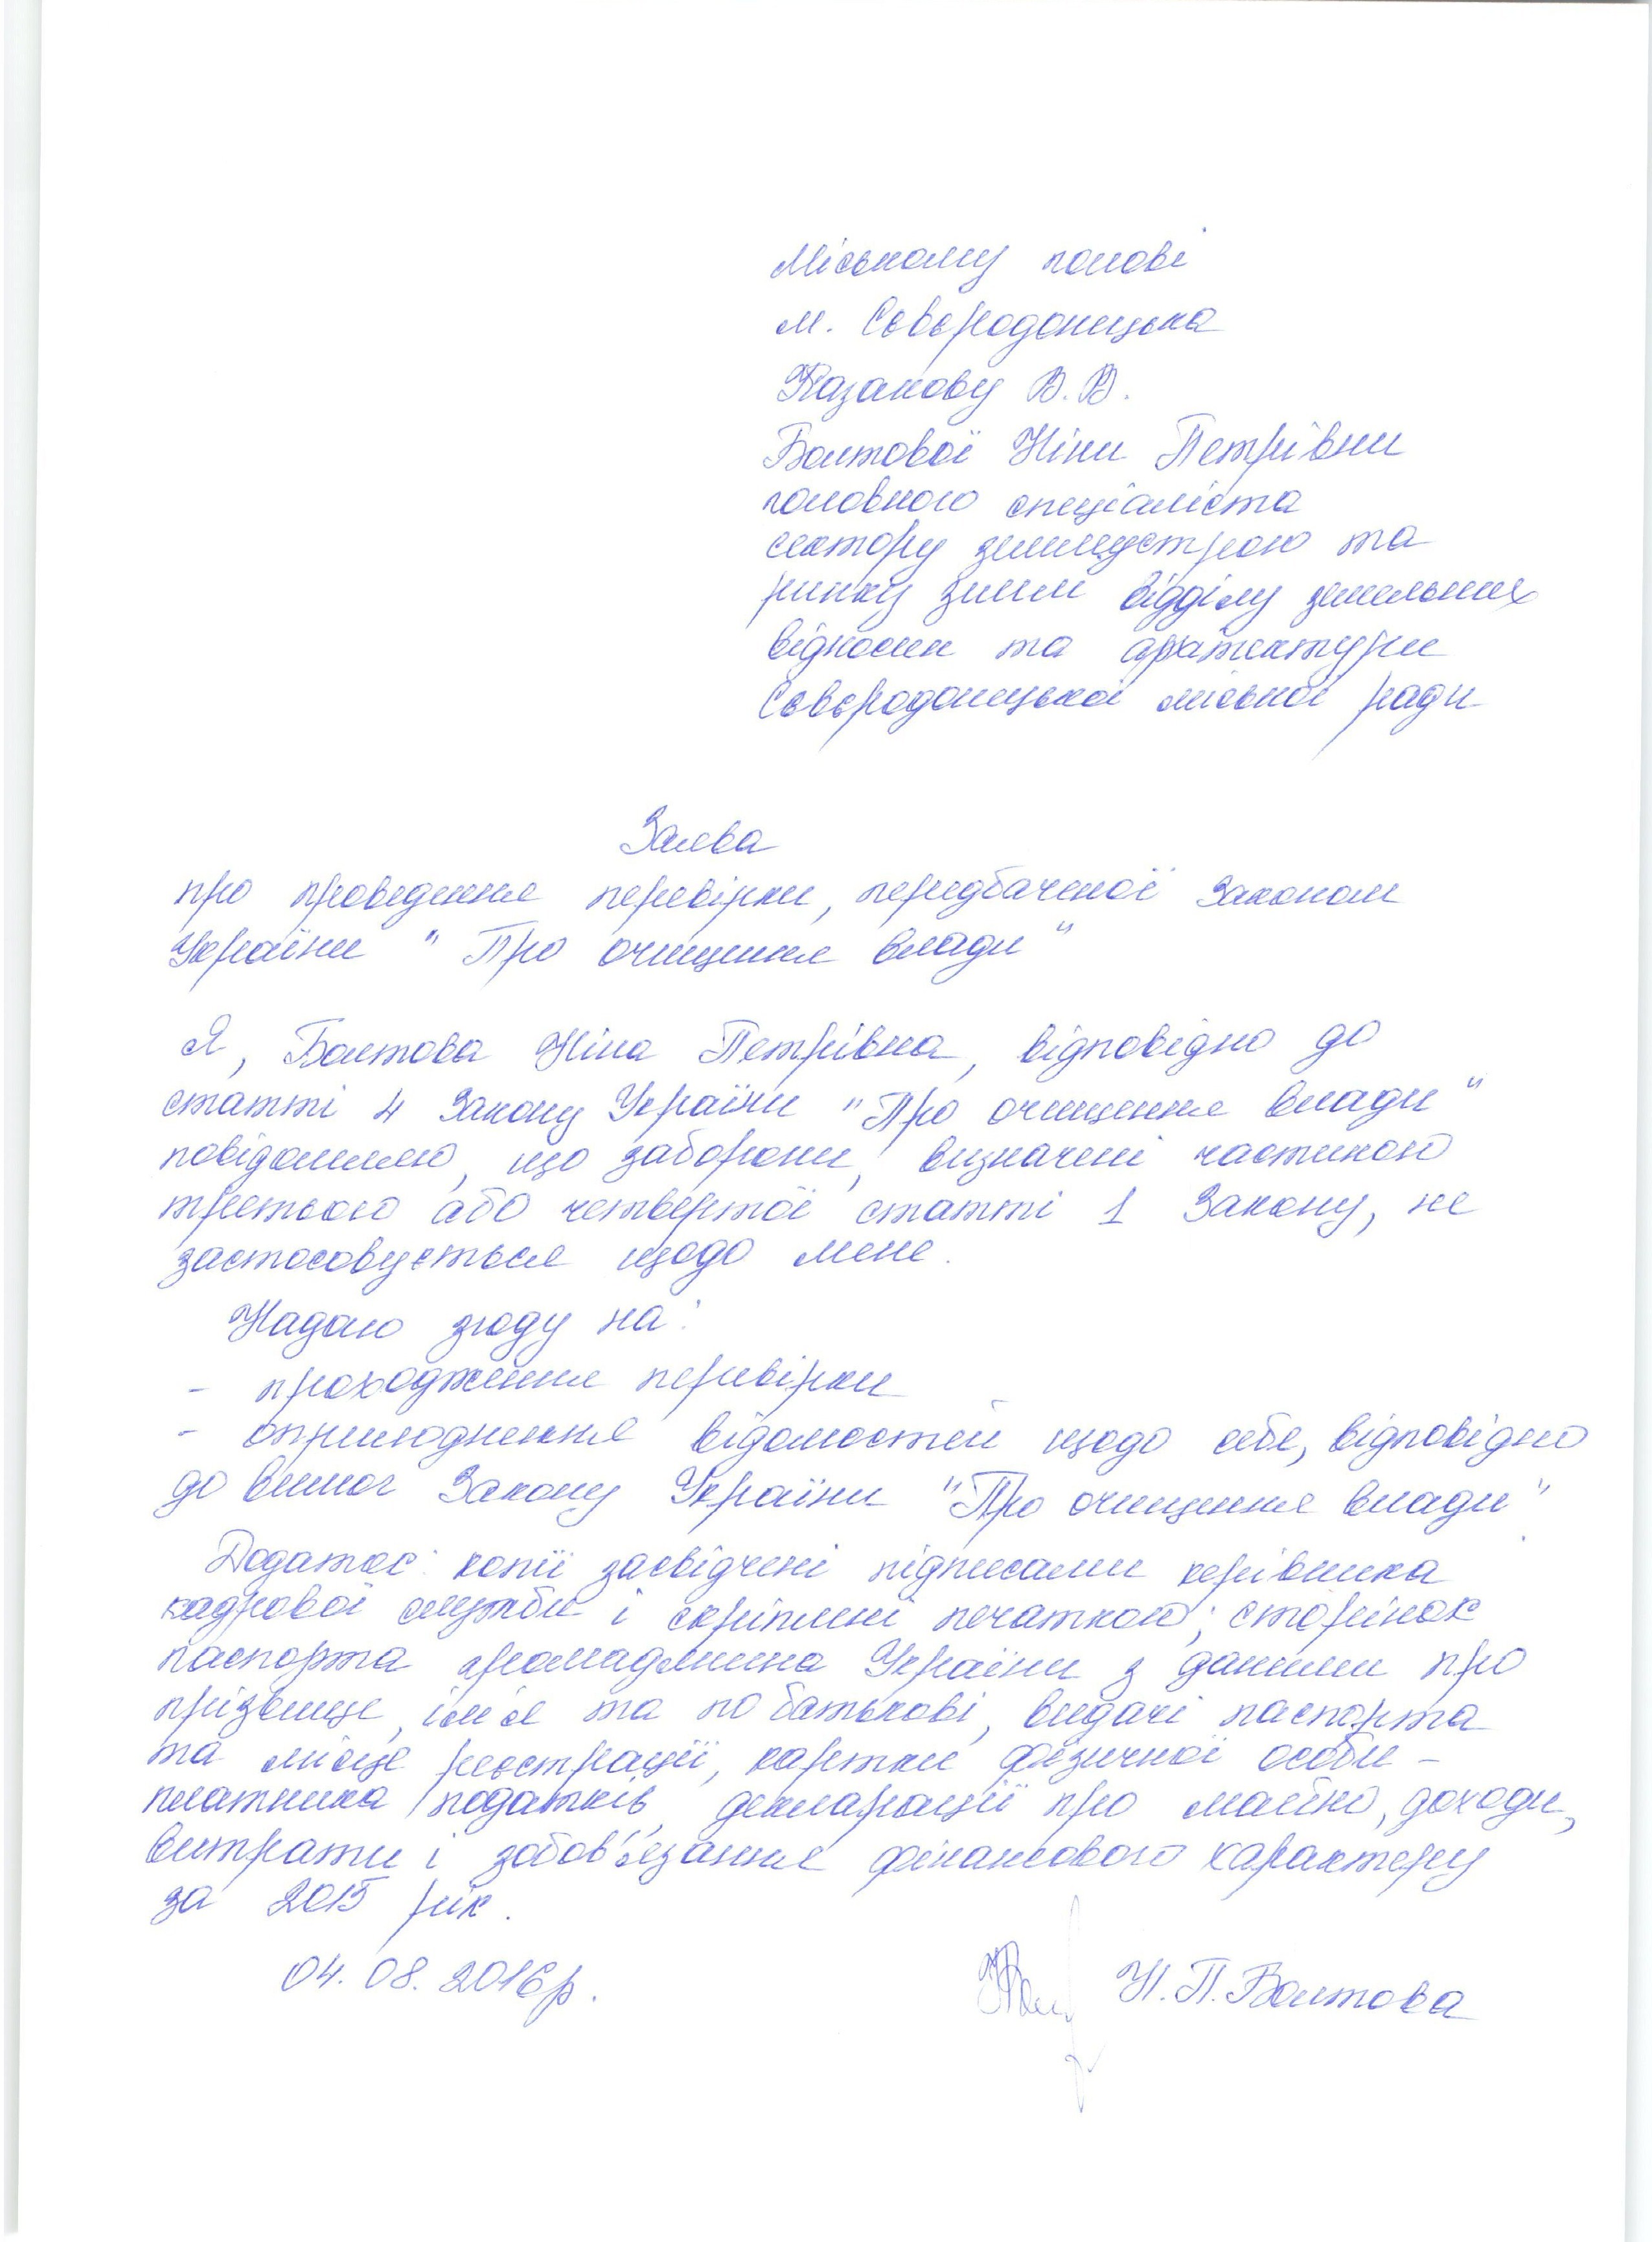 Міському голові
м. Сєвєродонецька
Казакову В.В.
Болтової Ніни Петрівни
головного спеціаліста
сектору землеустрою та
ринку землі відділу земельних
відносин та архітектури
Сєвєродонецької міської ради
Заява
про проведення перевірки, передбаченої Законом
України "Про очищення влади"
Я, Болтова Ніна Петрівна, відповідно до
статті 4 Закону України "Про очищення влади"
повідомляю, що заборони, визначені частиною
третьою або четвертої статті 1 Закону, не
застосовується щодо мене.
Надаю згоду на:
- проходження перевірки
- оприлюднення відомостей щодо себе, відповідно
до вимог Закону України "Про очищення влади"
Додаток: копії засвідчені підписами керівника
кадрової служби і скріплені печаткою; сторінок
паспорта громадянина України з даними про
прізвище, ім'я та по батькові, видачі паспорта
та місце реєстрації, картки фізичної особи -
платника податків, декларації про майно, доходи,
витрати і зобов'язання фінансового характеру
за 2015 рік.
04.08.2016р.
Н.П. Болтова